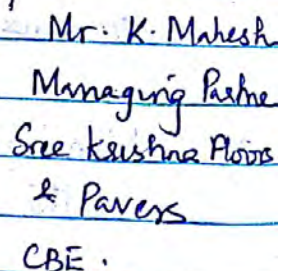 Mr. K. Mahesh
Managing Partne
Sree Krishna Floors
& Pavers
CBE.